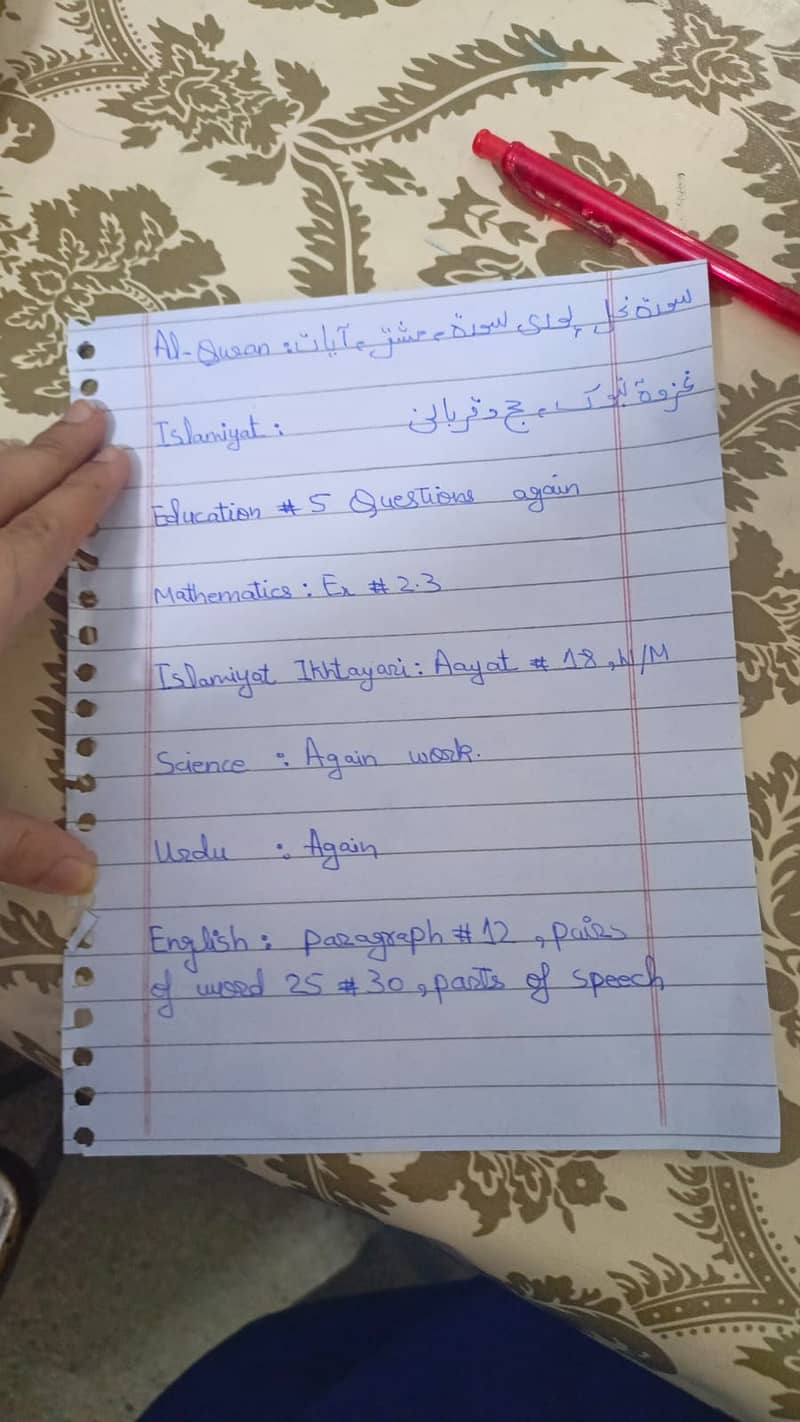 Al-Quran: سورۃ نحل پوری سورۃ، مشق، آیات
Islamiyat: غزوۃ تبوک، حج و قربانی
Education # 5 Questions again
Mathematics: Ex # 2.3
Islamiyat Ikhtayari: Aayat # 18, W/M
Science : Again work.
Urdu : Again
English: paragraph # 12, pairs
of word 25 # 30, parts of speech